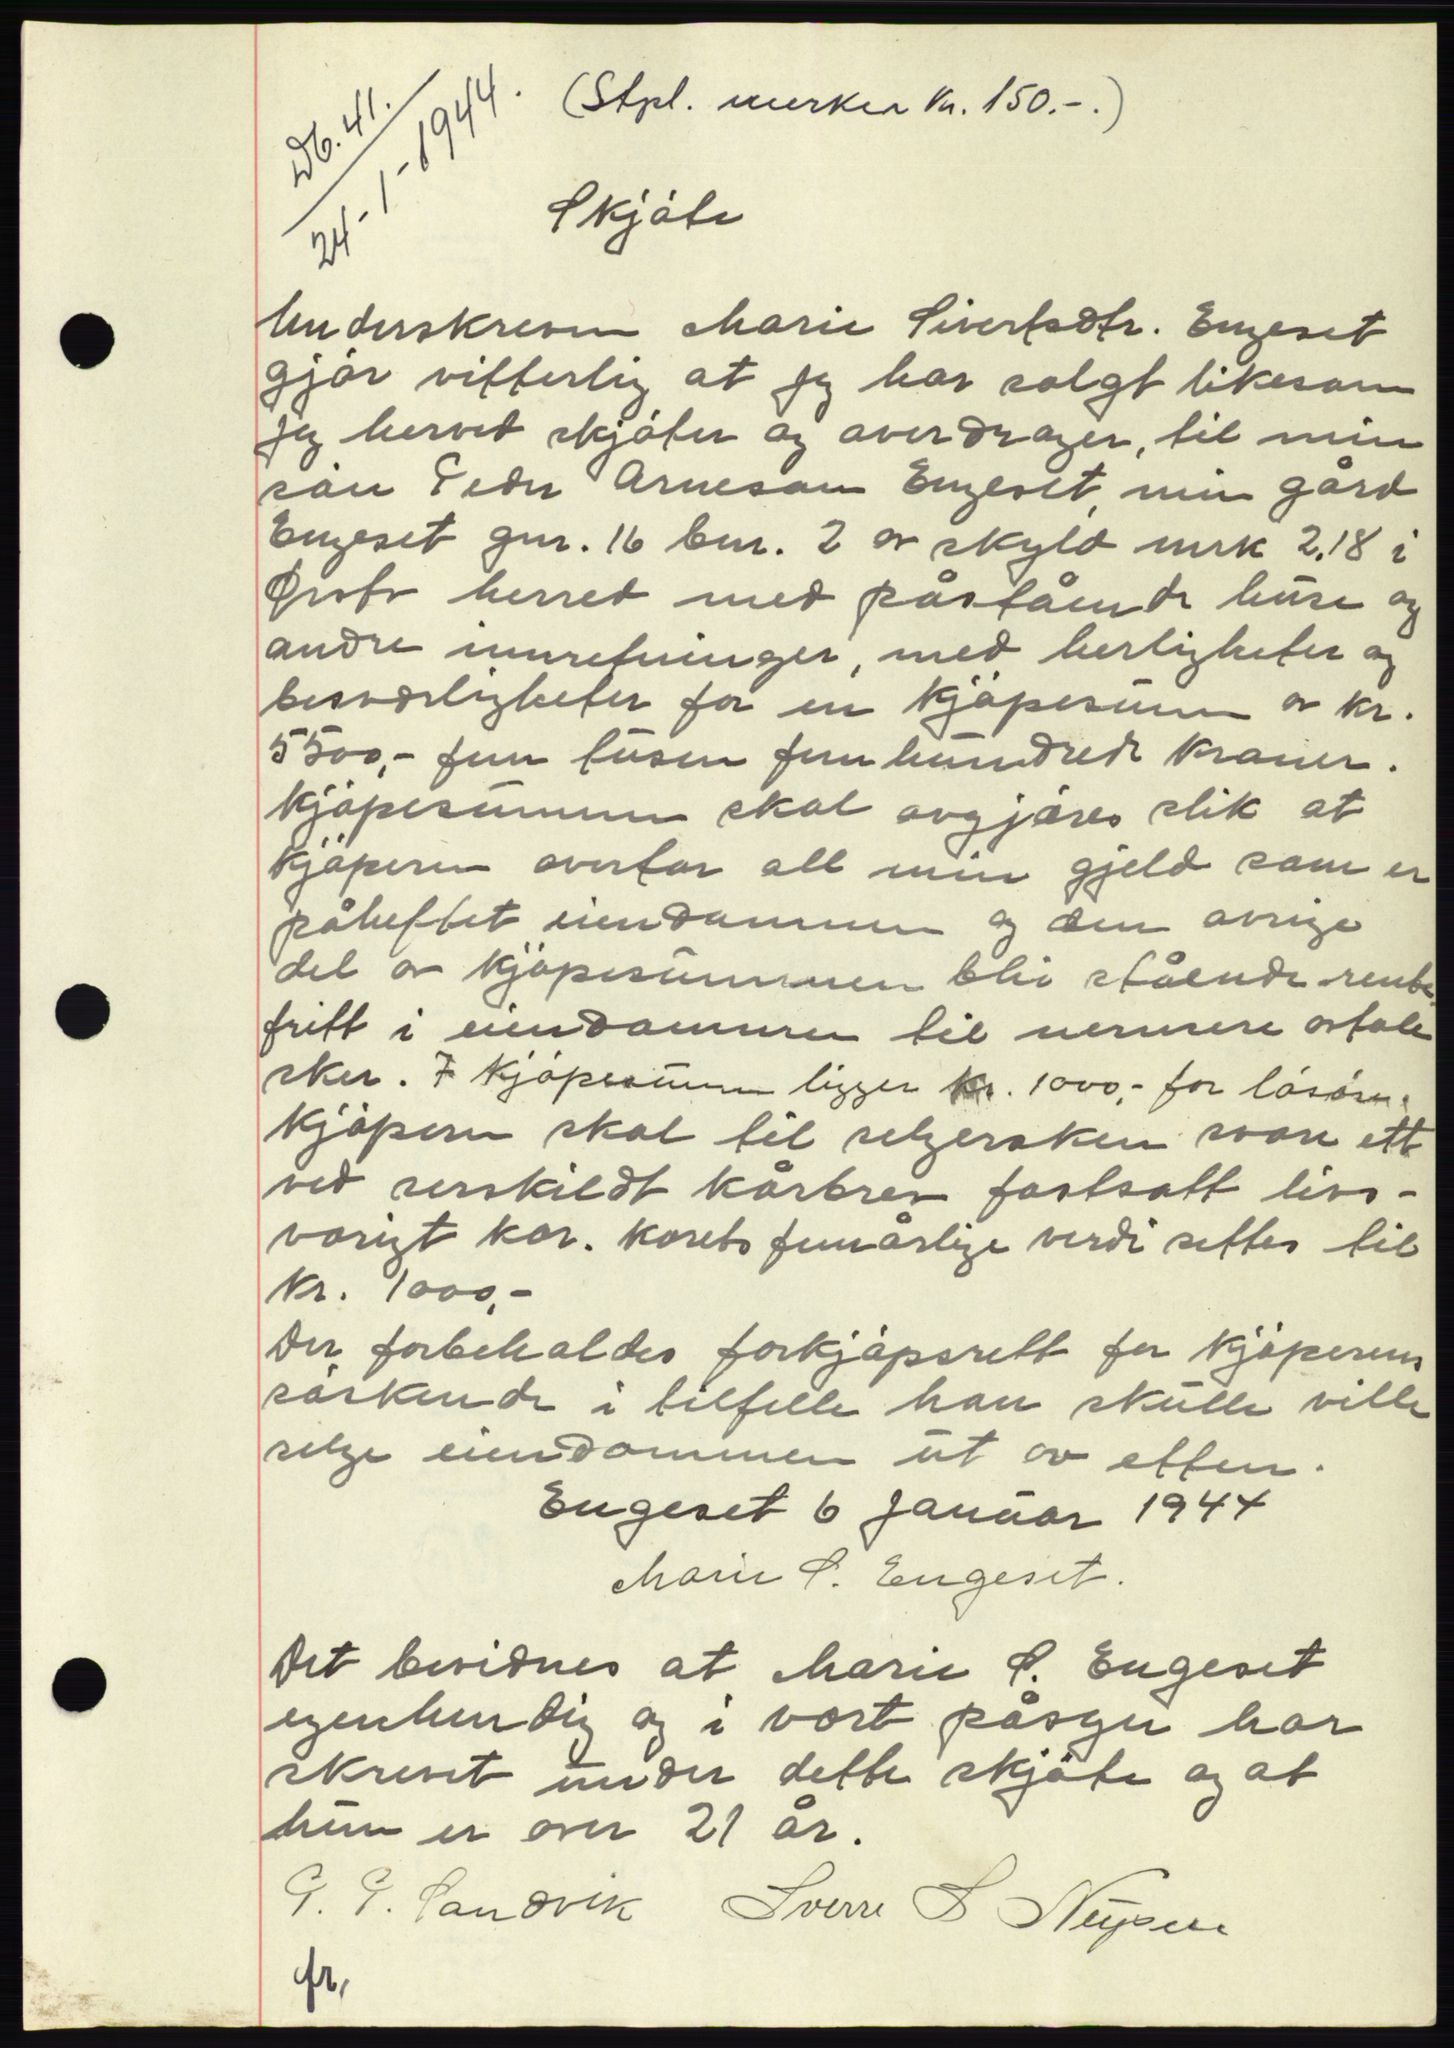 Db. 41.
24-1-1944.
(Stpl. merker kr. 150.-.)
Skjøte
Underskreven Marie Sivertsdtr. Engeset
gjør vitterlig at jeg har solgt likesom
jeg herved skjøter og overdrager, til min
søn Peder Arneson Engeset, min gård
Engeset gnr. 16 bnr. 2 av skyld mrk 2.18 i
Ørsta herred med påstående huse og
andre innretninger, med herligheter og
besværligheter for en kjøpesum av kr.
5500,- fem tusen femhundrede kroner.
Kjøpesummen skal avgjøres slik at
kjøperen overtar all min gjeld som er
påheftet eiendommen og den øvrige
del av kjøpesummen bli stående rente-
fritt i eiendommen til nermere avtale
sker. I kjøpesummen ligger kr. 1000,- for løsøre.
Kjøperen skal til selgersken svare ett
ved serskildt kårbrev fastsatt livs-
varigt kor. Korets femårlige verdi settes til
kr. 1000,-
Der forbeholdes forkjøpsrett for kjøperens
søskende i tilfelle han skulle ville
selge eiendommen ut av etten.
Engeset 6 januar 1944
Marie S. Engeset.
Det bevidnes at Marie S. Engeset
egenhendig og i vort påsyn har
skrevet under dette skjøte og at
hun er over 21 år.
Sandvik Sverre S
fr,